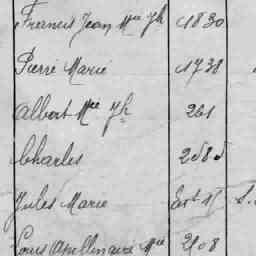 Francis Jean Mie Jh c1830
Pierre Marie c1738
Albert Mie Jh 261
Charles 2585
Jules Marie Ext S.
Louis Apollinaire Mie 2108